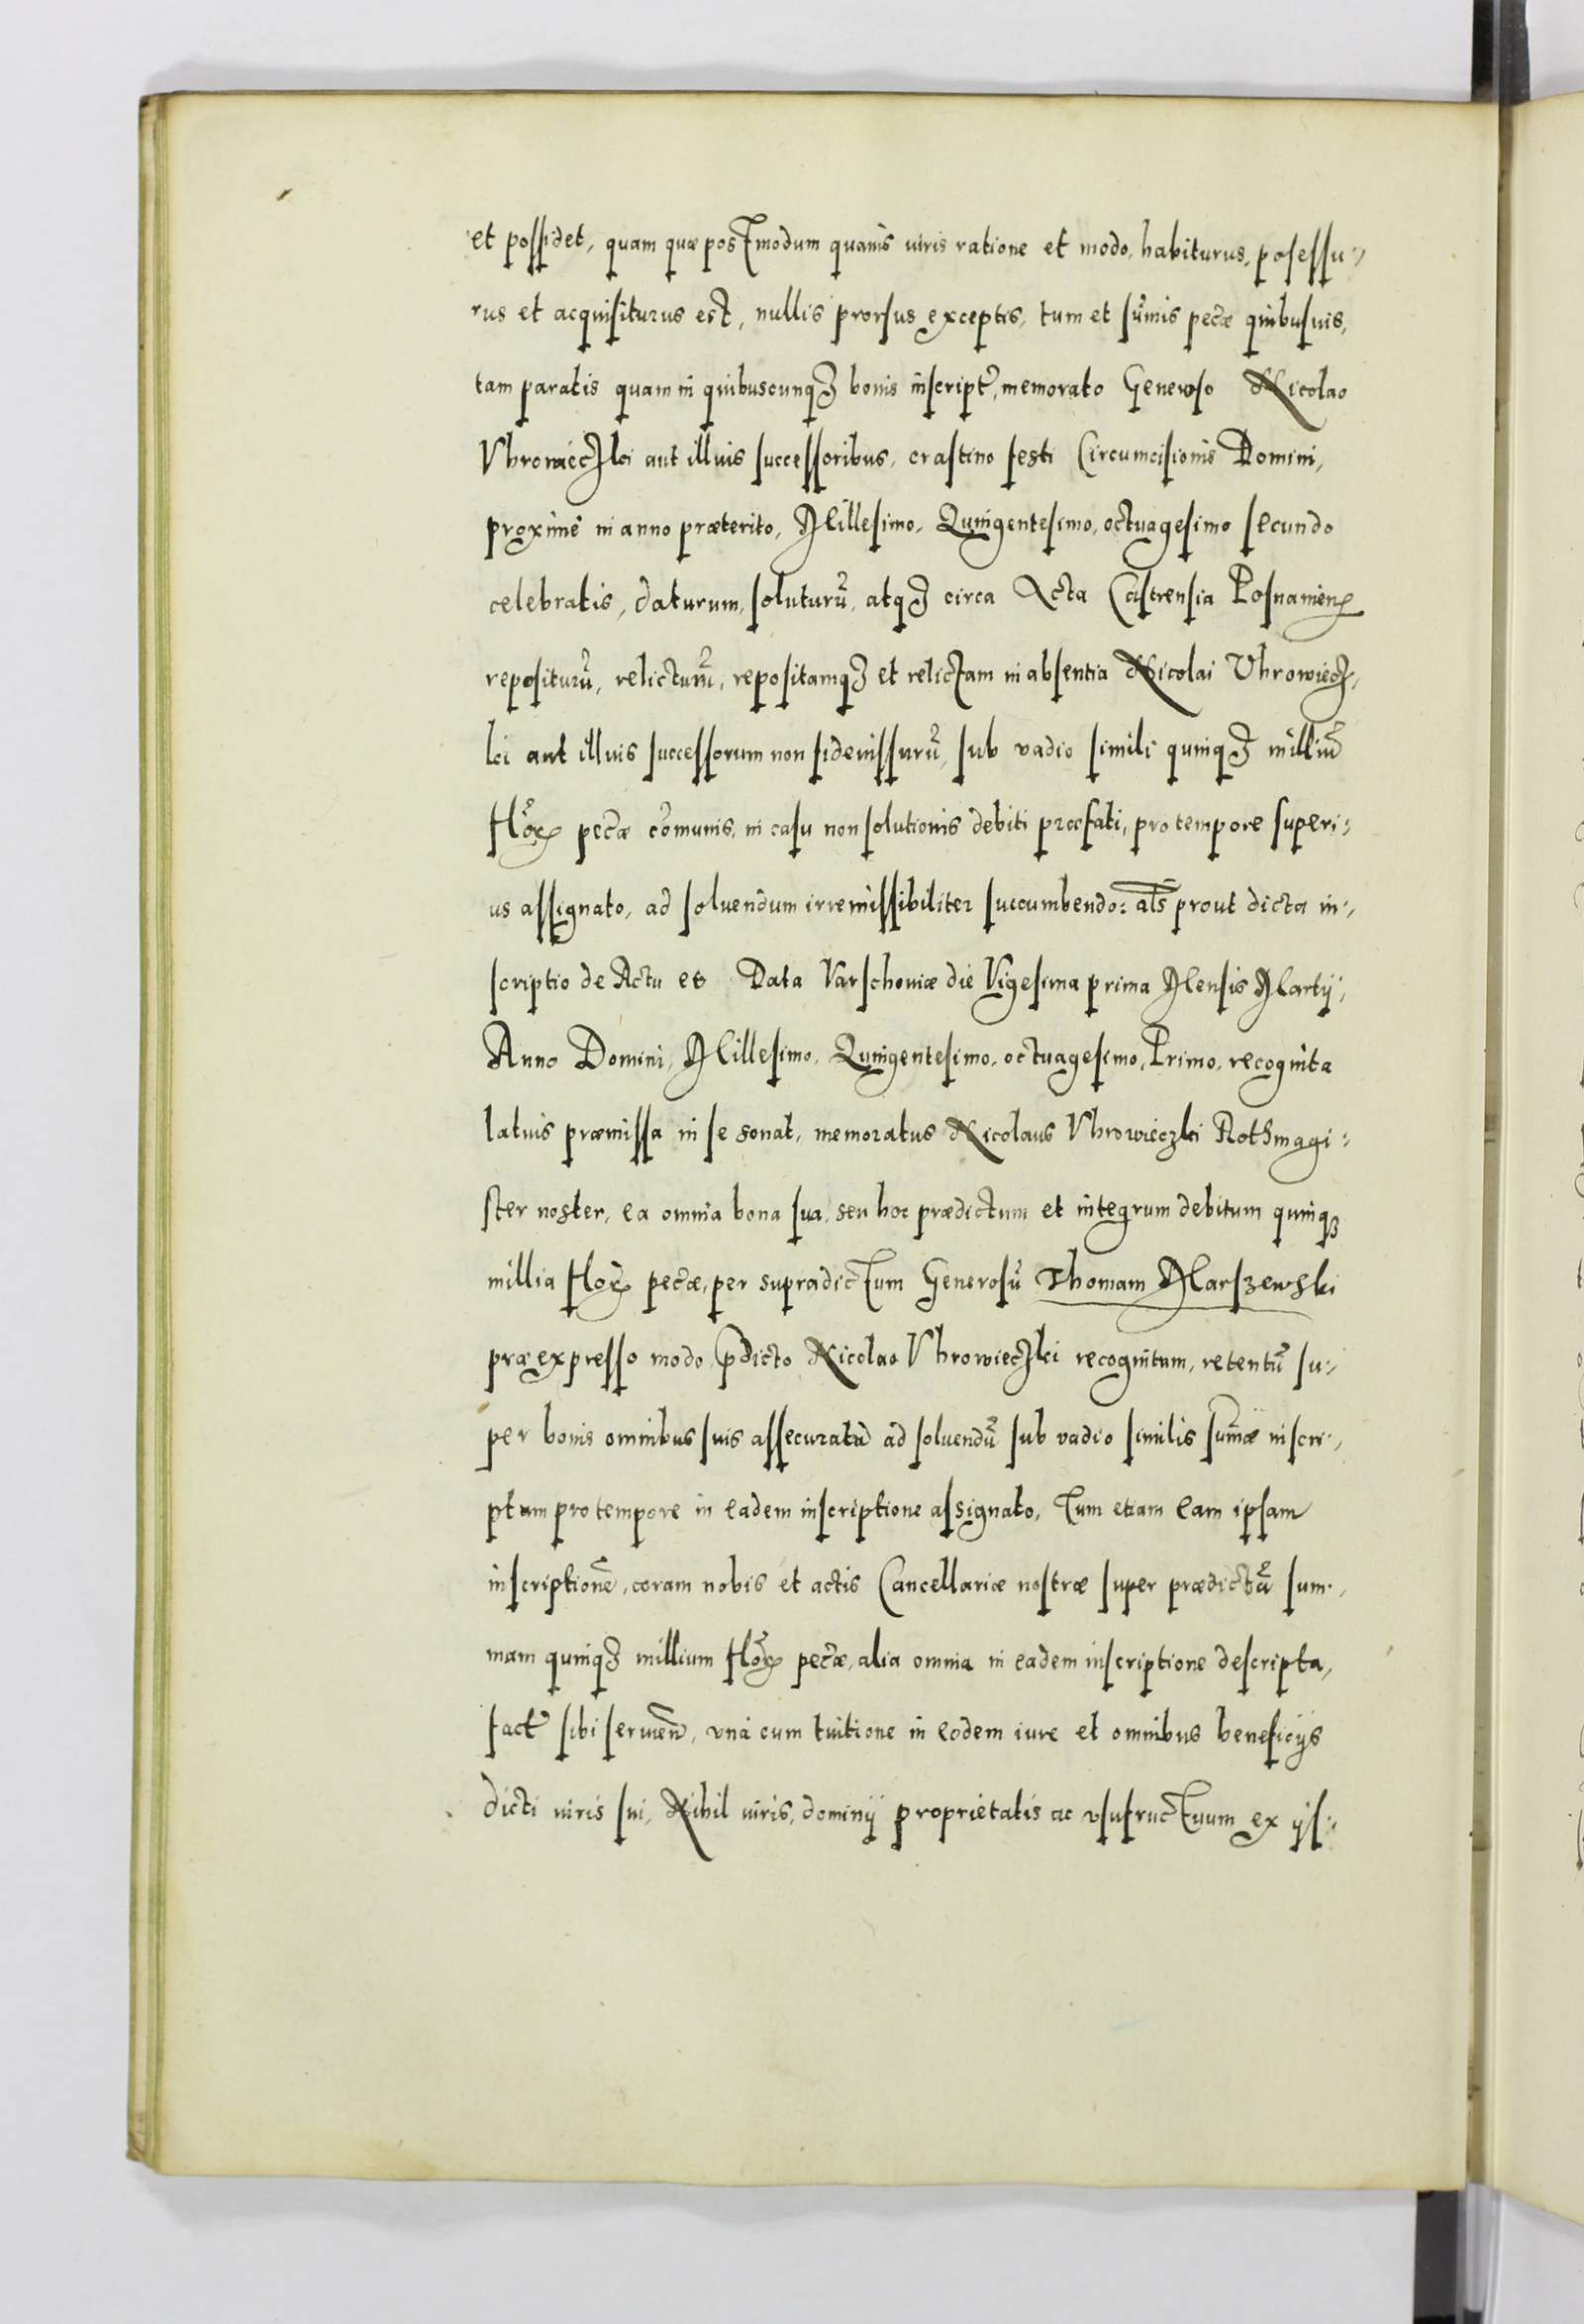 et possidet, quam quæ postmodum quamis iuris ratione et modo, habiturus, posessu-
rus et acquisiturus est, nullis prorsus exceptis, tum et sum̃is pecc̃æ quibusuis,
tam paratis quam in quibuscunq₃ bonis inscript̃, memorato Generoso Nicolao
Vhrowieczki aut illius successoribus, crastino festi Circumcisionis Domini,
proximè in anno præterito, Millesimo, Quingentesimo, octuagesimo secundo
celebratis, daturum, soluturũ, atq₃ circa Acta Castrensia Posnanien̄
repositurũ, relicturũ, repositamq₃ et relictam in absentia Nicolai Vhrowiecz-
ki aut illius successorum non sideuissurũ, sub vadio simili quinq₃ milliũ
flor̃ pec̃æ cõmunis, in casu non solutionis debiti præfati, pro tempore superi-
us assignato, ad soluendum irremissibiliter succumbendo: al̃s prout dicta in-
scriptio de Actu et Data Varschouiæ die Vigesima prima Mensis Martij,
Anno Domini, Millesimo, Quingentesimo, octuagesimo, Primo, recognita
latius præmissa in se sonat, memoratus Nicolaus Vhrowieczki Rothmagi-
ster noster, ea omnia bona sua, seu hoc prædictum et integrum debitum quinq₃
millia flor̃ pec̃æ, per supradictum Generosũ Thomam Marszewski
præexpresso modo, p̃dicto Nicolao Vhrowieczki recognitum, retentũ su-
per bonis omnibus suis assecuratũ ad soluendũ sub vadio similis sum̃æ inscri-
ptum pro tempore in eadem inscriptione assignato, Tum etiam eam ipsam
inscriptionẽ, coram nobis et actis Cancellariæ nostræ super prædictã sum-
mam quinq₃ millium flor̃ pec̃æ, alia omnia in eadem inscriptione descripta,
fact̃ sibi seruien̄, vnà cum tuitione in eodem iure et omnibus beneficijs
dicti iuris sui, Nihil iuris, dominij proprietatis ac vsufructuum ex ijs-